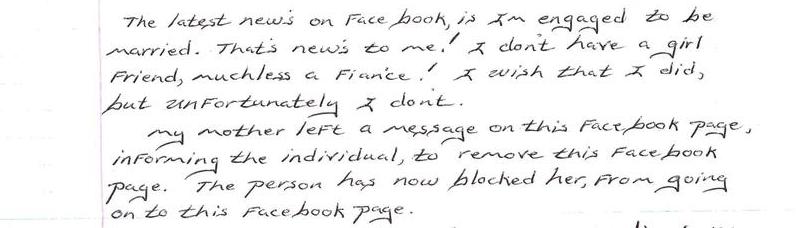 The latest new's on Face book, is I'm engaged to be
married. That's new's to me! I don't have a girl
Friend, muchless a Fiance'! I wish that I did,
but unFortunately I don't.
My mother leFt a message on this Face book page,
inForming the individual, to remove this Facebook
page. The person has now blocked her, From going
on to this Facebook page.